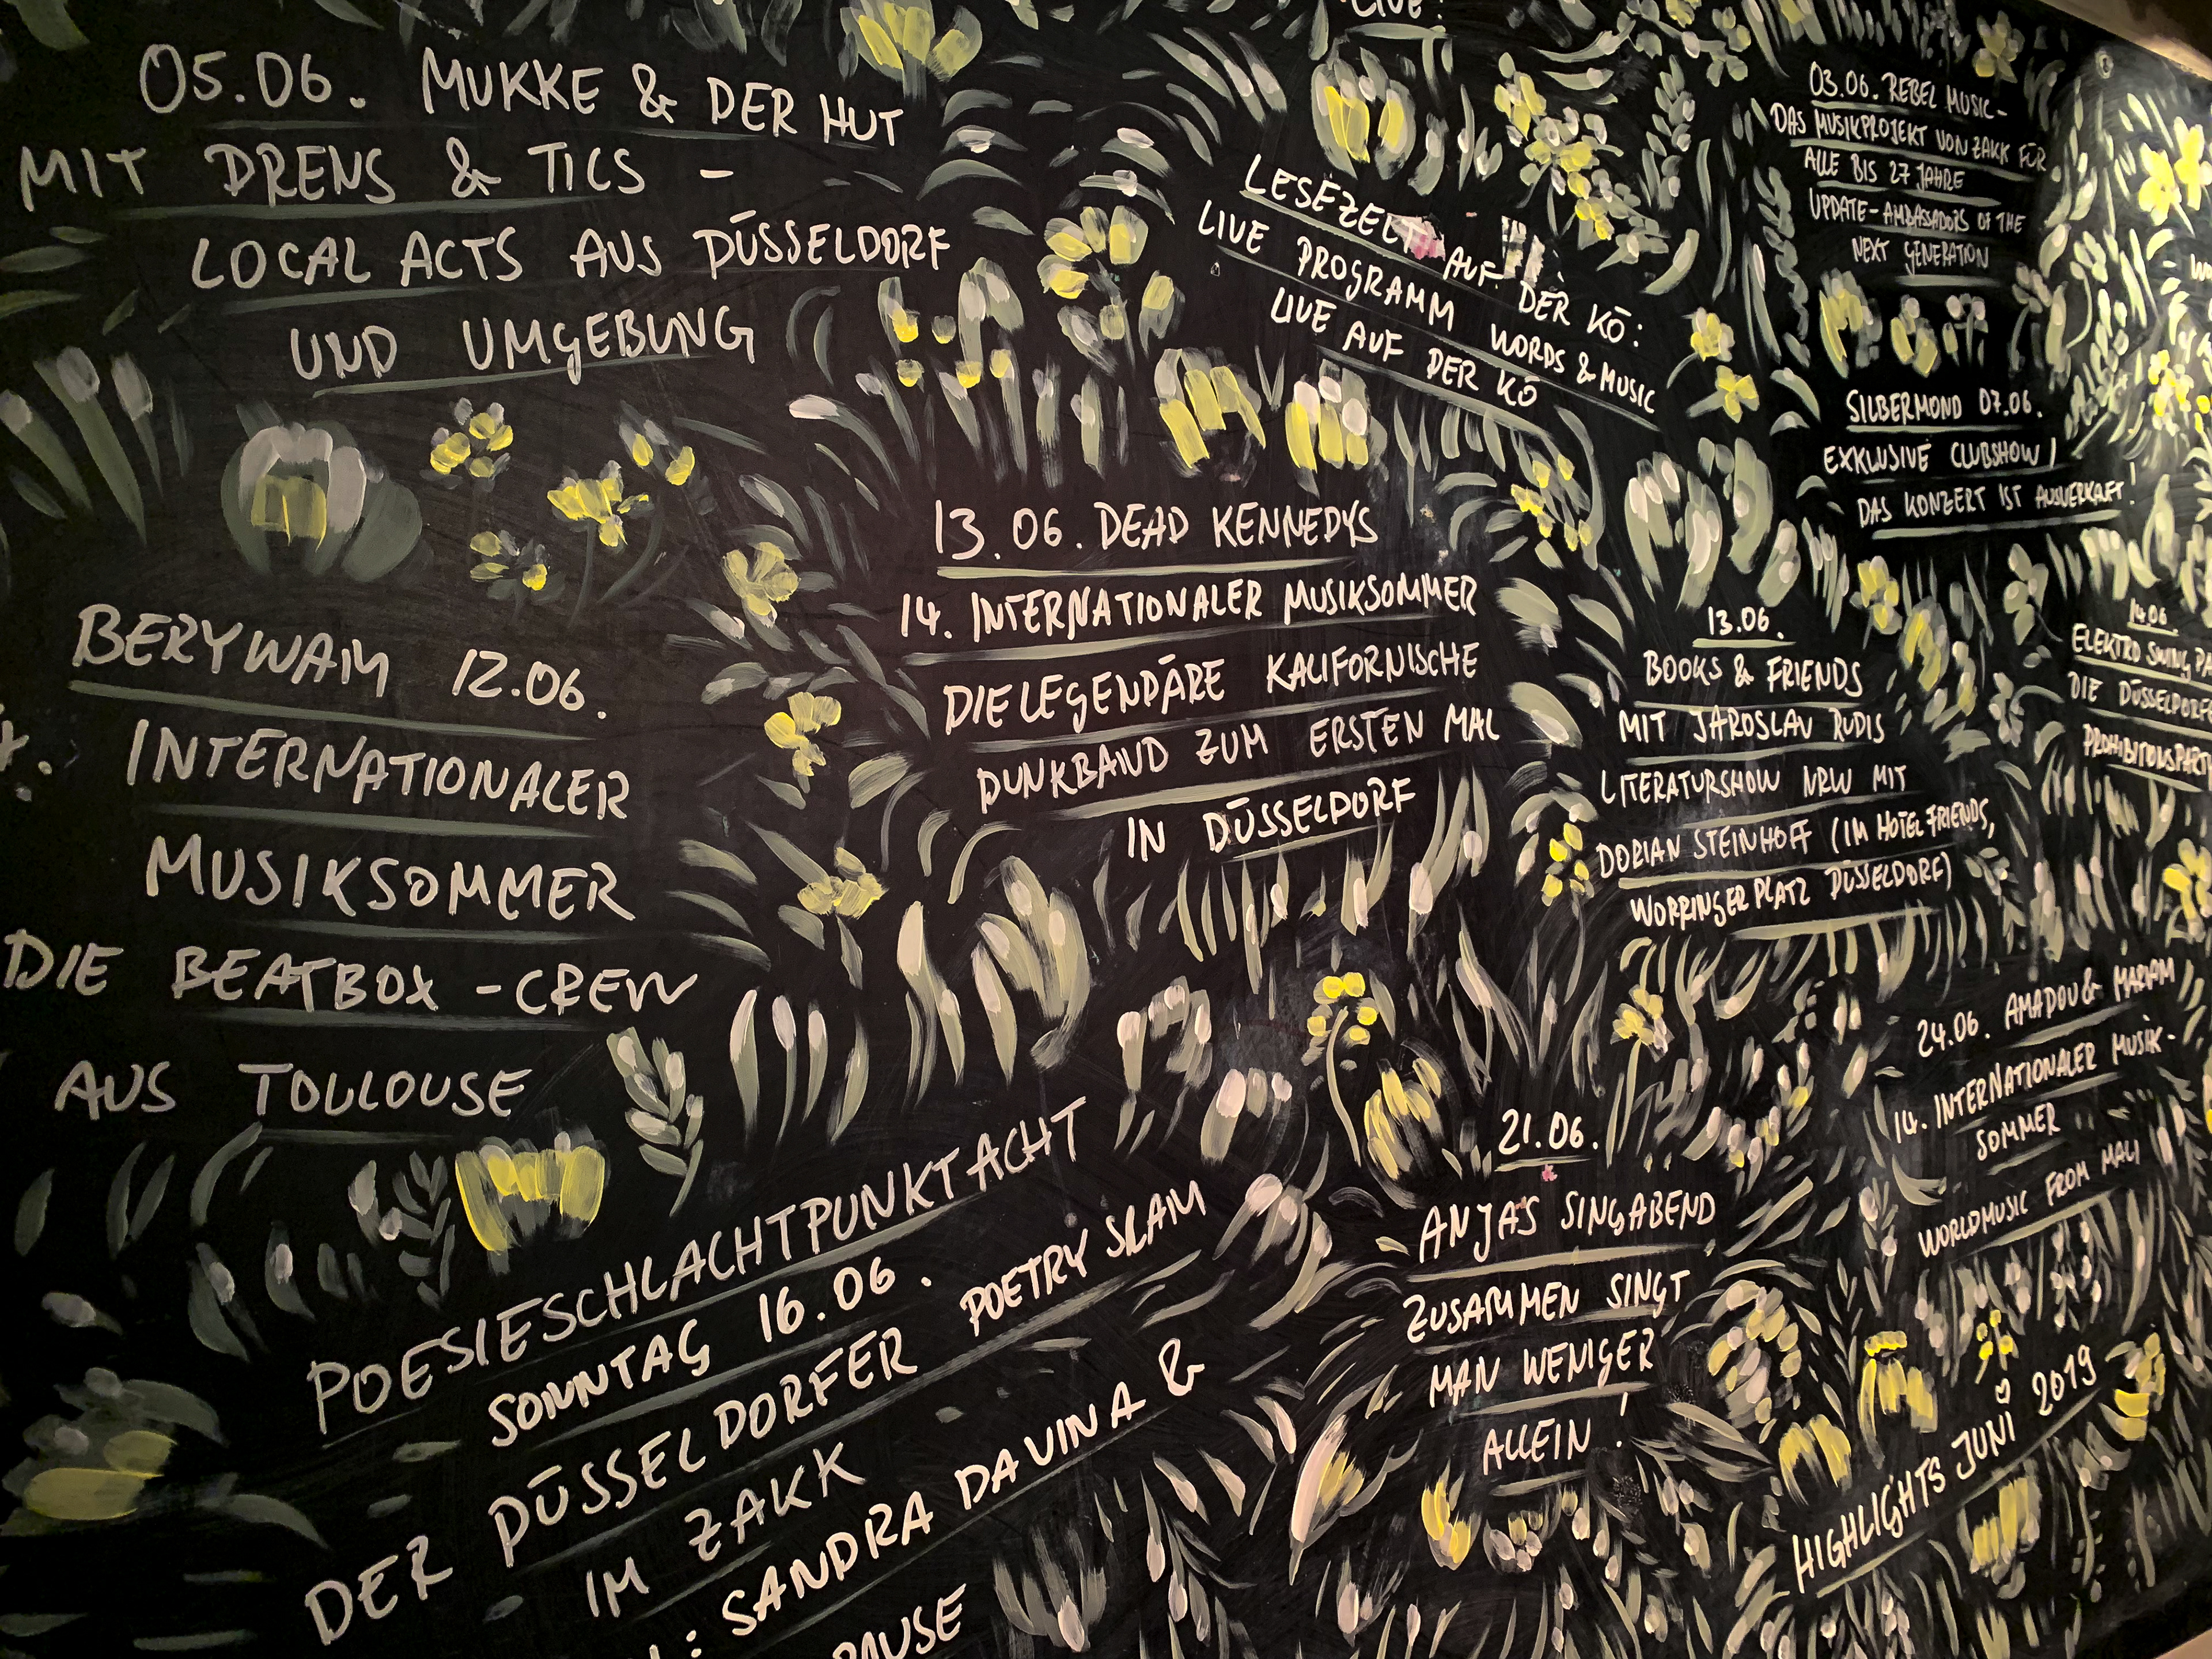 LIVE!
05.06. MUKKE & DER HUT
MIT DRENS & TICS -
LOCAL ACTS AUS DÜSSELDORF
UND UMGEBUNG
LESEZELT AUF DER KÖ:
LIVE PROGRAMM WORDS & MUSIC
LIVE AUF DER KÖ
03.06. REBEL MUSIC-
DAS MUSIKPROJEKT VON ZAKK FÜR
ALLE BIS 27 JAHRE
UPDATE-AMBASSADORS OF THE
NEXT GENERATION
SILBERMOND 07.06.
EXKLUSIVE CLUBSHOW!
DAS KONZERT IST AUSVERKAFT!
BERYWAM 12.06.
INTERNATIONALER
MUSIKSOMMER
DIE BEATBOX-CREW
AUS TOULOUSE
13.06. DEAD KENNEDYS
14. INTERNATIONALER MUSIKSOMMER
DIE LEGENDÄRE KALIFORNISCHE
PUNKBAND ZUM ERSTEN MAL
IN DÜSSELDORF
13.06.
BOOKS & FRIENDS
MIT JAROSLAV RUDIS
LITERATURSHOW NRW MIT
DORIAN STEINHOFF (IM HOTEL FRIENDS,
WORRINGER PLATZ DÜSSELDORF)
14.06.
ELEKTRO SWING
DIE DÜSSELDORF
PROHIBITIONSPARTY
POESIESCHLACHTPUNKTACHT
SONNTAG 16.06.
DER DÜSSELDORFER POETRY SLAM
IM ZAKK
: SANDRA DA VINA &
PAUSE
21.06.
ANJAS SINGABEND
ZUSAMMEN SINGT
MAN WENIGER
ALLEIN!
24.06. AMADOU & MARIAM
14. INTERNATIONALER MUSIK-
SOMMER
WORLDMUSIC FROM MALI
HIGHLIGHTS JUNI 2019